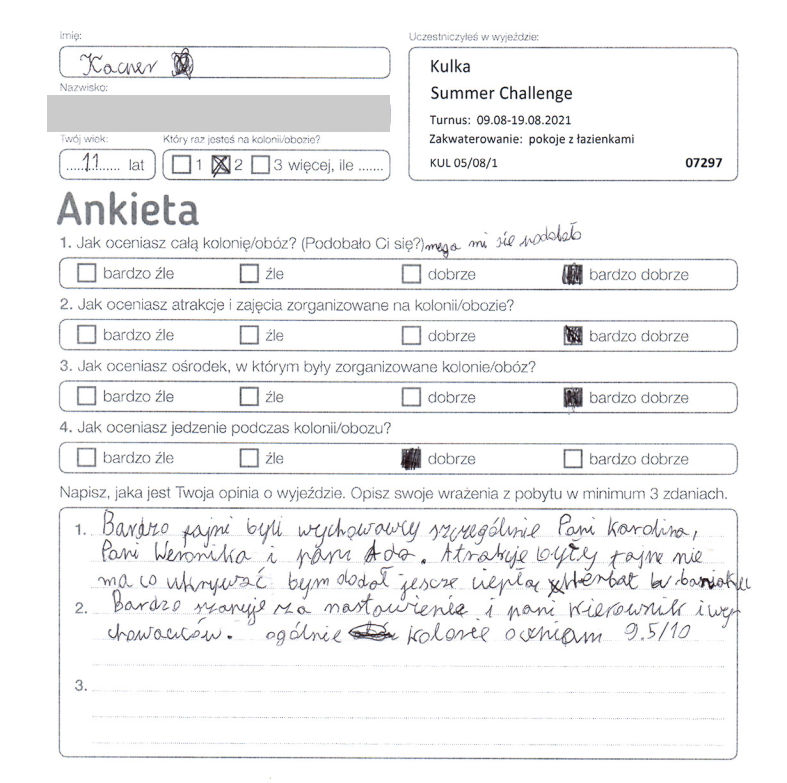 Imię:
Kacper
Nazwisko:
Twój wiek:
11 lat
Który raz jesteś na kolonii/obozie?
1 2 3 więcej, ile .......
Uczestniczyłeś w wyjeździe:
Kulka
Summer Challenge
Turnus: 09.08-19.08.2021
Zakwaterowanie: pokoje z łazienkami
KUL 05/08/1 07297
Ankieta
1. Jak oceniasz całą kolonię/obóz? (Podobało Ci się?) mega mi się podobało
bardzo źle źle dobrze bardzo dobrze
2. Jak oceniasz atrakcje i zajęcia zorganizowane na kolonii/obozie?
bardzo źle źle dobrze bardzo dobrze
3. Jak oceniasz ośrodek, w którym były zorganizowane kolonie/obóz?
bardzo źle źle dobrze bardzo dobrze
4. Jak oceniasz jedzenie podczas kolonii/obozu?
bardzo źle źle dobrze bardzo dobrze
Napisz, jaka jest Twoja opinia o wyjeździe. Opisz swoje wrażenia z pobytu w minimum 3 zdaniach.
1. Bardzo fajni byli wychowawcy szczególnie Pani Karolina,
Pani Weronika i pani Ada. Atrakcje były fajne nie
ma co ukrywać bym dodał jescze ciepłą herbat w baniaku
2. Bardzo szanuje za nastawienie i pani kierownik i wy
chowawców. ogólnie kolonie oceniam 9.5/10
3.